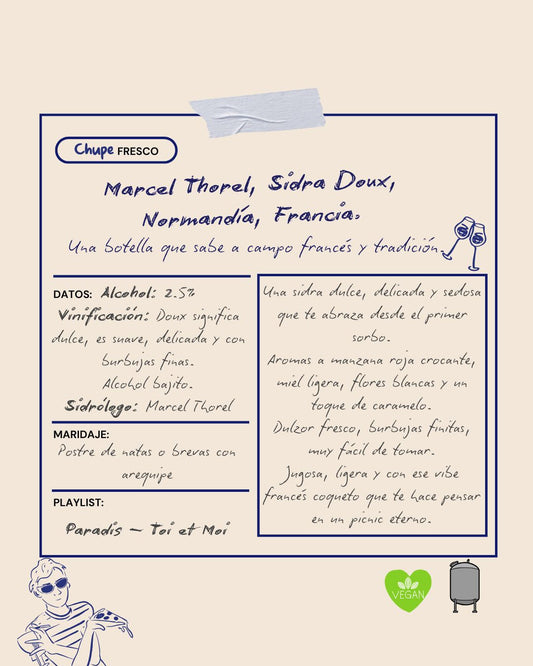 Chupe FRESCO
Marcel Thorel, Sidra Doux,
Normandía, Francia.
Una botella que sabe a campo francés y tradición.
DATOS: Alcohol: 2.5%
Vinificación: Doux significa
dulce, es suave, delicada y con
burbujas finas.
Alcohol bajito.
Sidrólogo: Marcel Thorel
MARIDAJE:
Postre de natas o brevas con
arequipe
PLAYLIST:
Paradis – Toi et Moi
Una sidra dulce, delicada y sedosa
que te abraza desde el primer
sorbo.
Aromas a manzana roja crocante,
miel ligera, flores blancas y un
toque de caramelo.
Dulzor fresco, burbujas finitas,
muy fácil de tomar.
Jugosa, ligera y con ese vibe
francés coqueto que te hace pensar
en un picnic eterno.
VEGAN